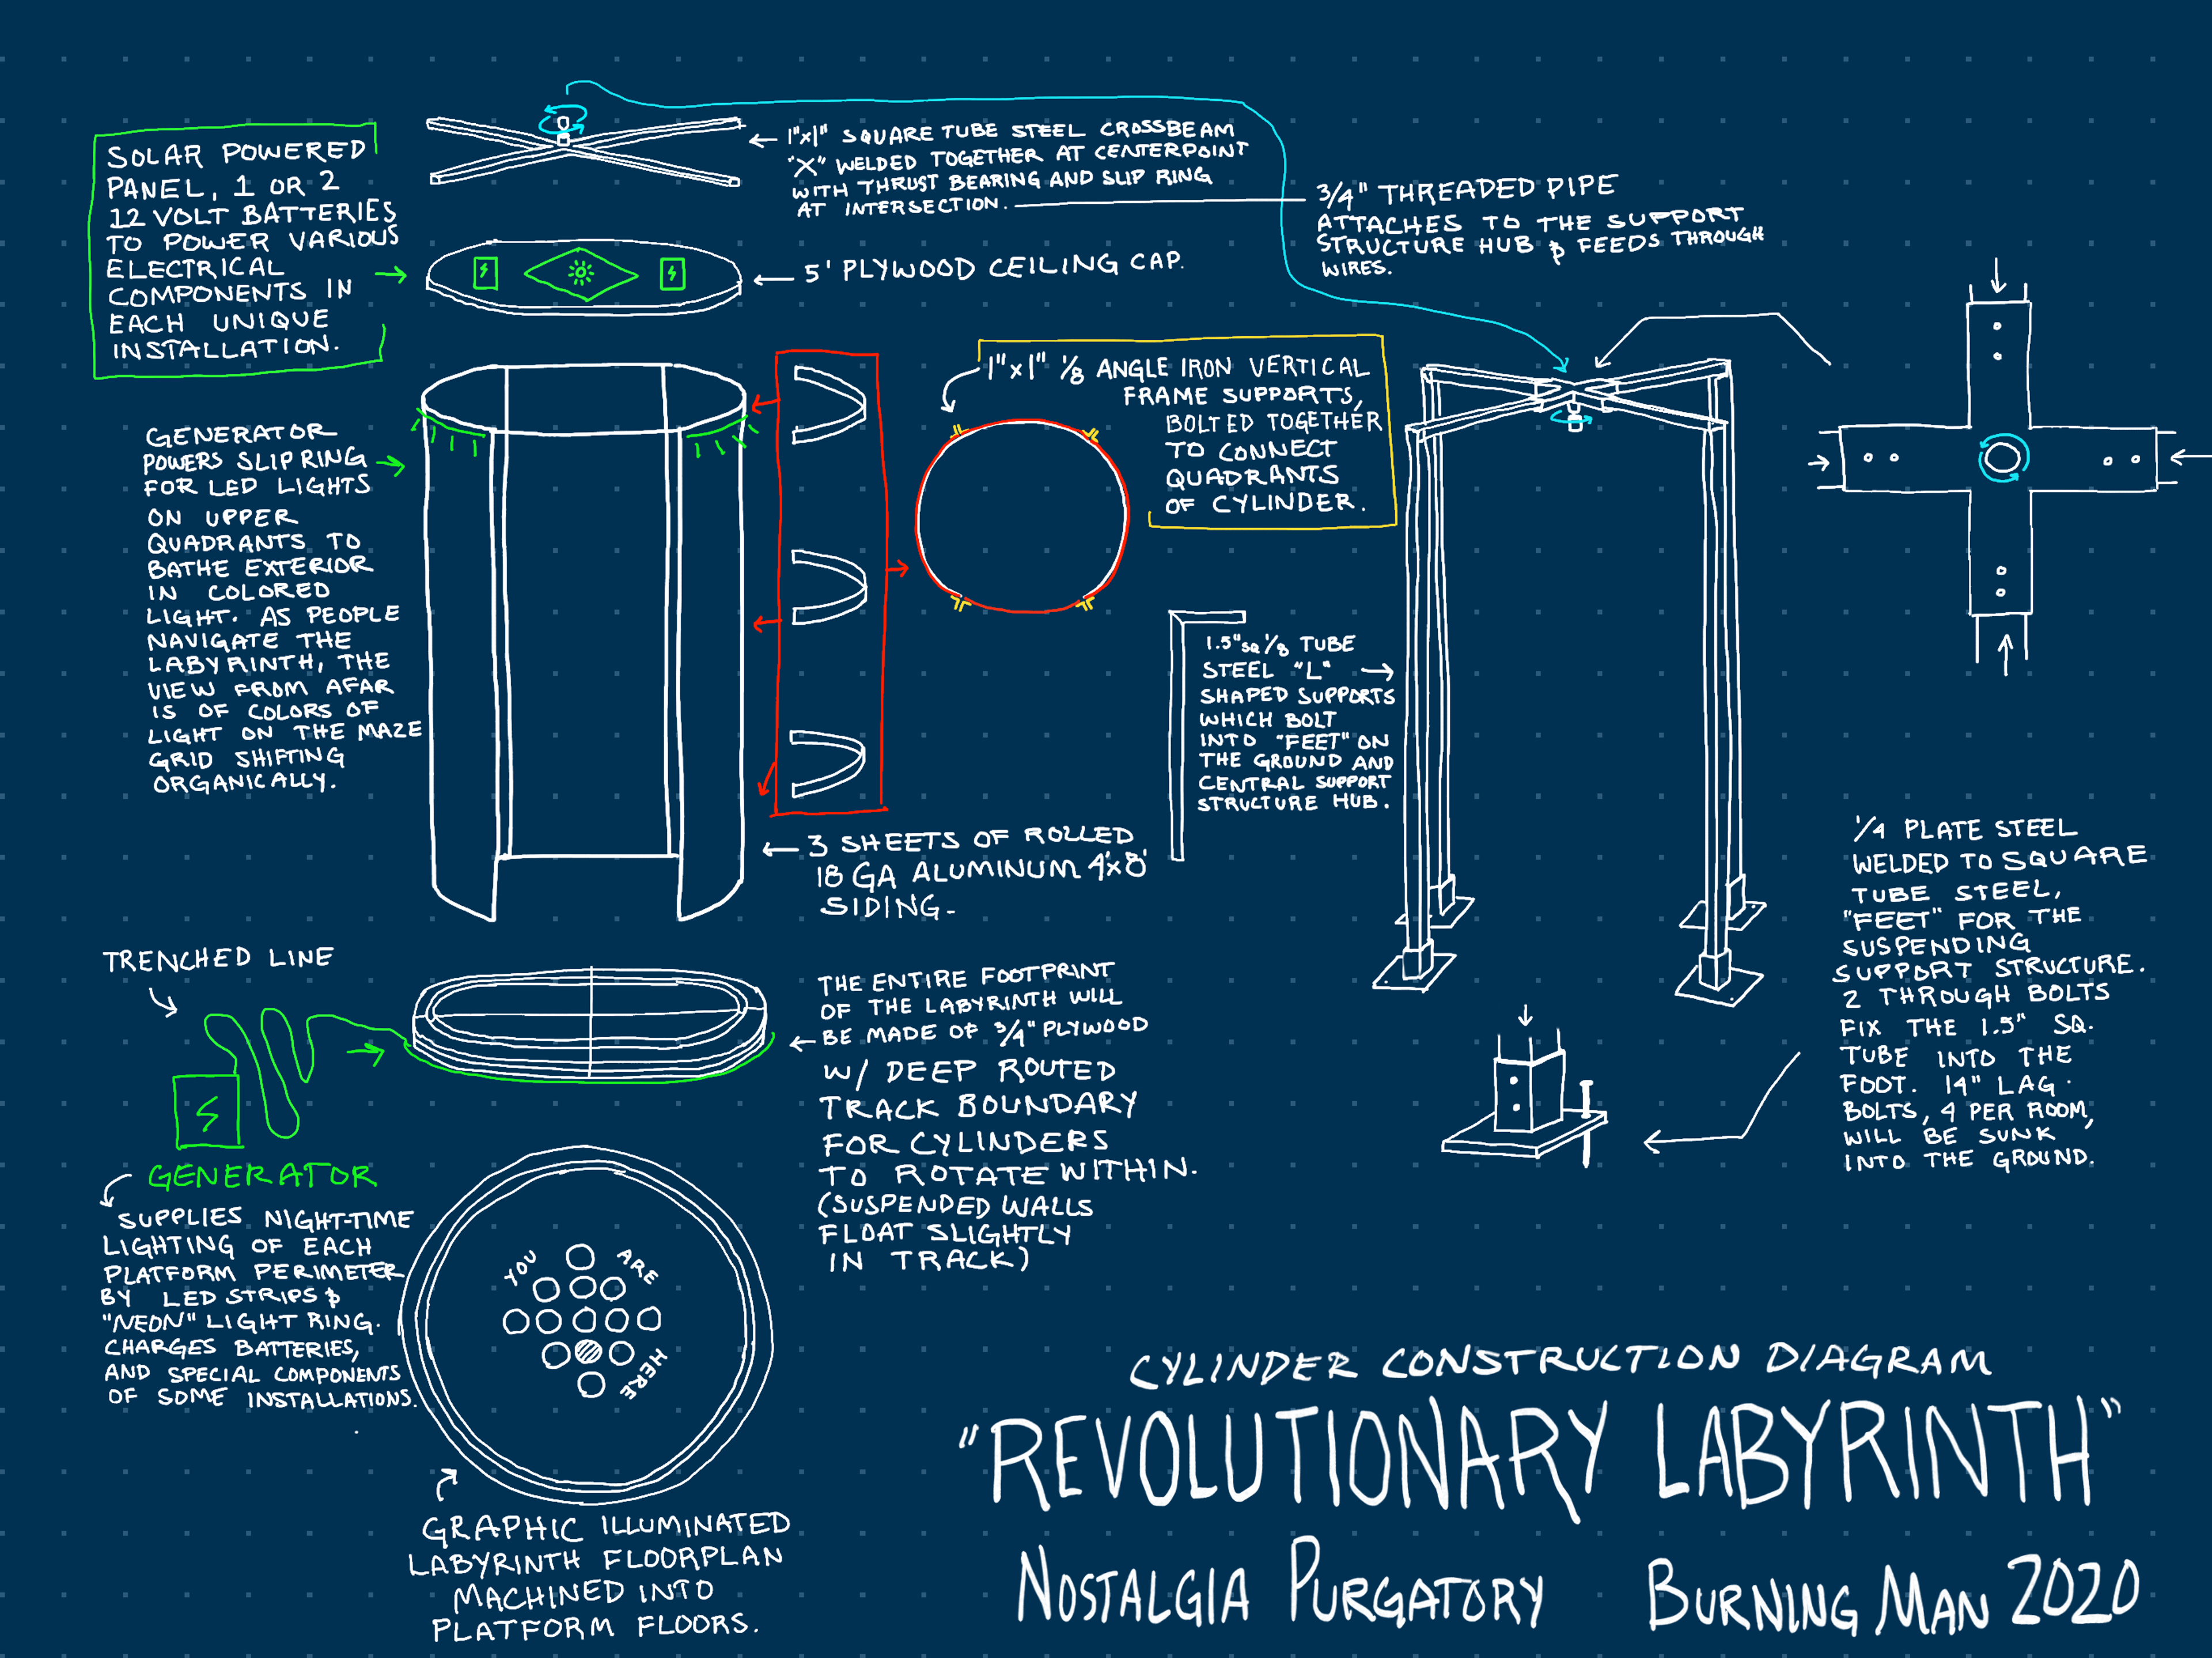 SOLAR POWERED
PANEL, 1 OR 2
12 VOLT BATTERIES
TO POWER VARIOUS
ELECTRICAL
COMPONENTS IN
EACH UNIQUE
INSTALLATION.
1"x1" SQUARE TUBE STEEL CROSSBEAM
"X" WELDED TOGETHER AT CENTERPOINT
WITH THRUST BEARING AND SLIP RING
AT INTERSECTION.
3/4" THREADED PIPE
ATTACHES TO THE SUPPORT
STRUCTURE HUB & FEEDS THROUGH
WIRES.
5' PLYWOOD CEILING CAP.
GENERATOR
POWERS SLIPRING
FOR LED LIGHTS
ON UPPER
QUADRANTS TO
BATHE EXTERIOR
IN COLORED
LIGHT. AS PEOPLE
NAVIGATE THE
LABYRINTH, THE
VIEW FROM AFAR
IS OF COLORS OF
LIGHT ON THE MAZE
GRID SHIFTING
ORGANICALLY.
1"x1" 1/8 ANGLE IRON VERTICAL
FRAME SUPPORTS,
BOLTED TOGETHER
TO CONNECT
QUADRANTS
OF CYLINDER.
1.5" SQ 1/8 TUBE
STEEL "L"
SHAPED SUPPORTS
WHICH BOLT
INTO "FEET" ON
THE GROUND AND
CENTRAL SUPPORT
STRUCTURE HUB.
3 SHEETS OF ROLLED
18 GA ALUMINUM 4'x8'
SIDING-
1/4 PLATE STEEL
WELDED TO SQUARE
TUBE STEEL,
"FEET" FOR THE
SUSPENDING
SUPPORT STRUCTURE.
2 THROUGH BOLTS
FIX THE 1.5" SQ.
TUBE INTO THE
FOOT. 14" LAG
BOLTS, 4 PER ROOM,
WILL BE SUNK
INTO THE GROUND.
TRENCHED LINE
THE ENTIRE FOOTPRINT
OF THE LABYRINTH WILL
BE MADE OF 3/4" PLYWOOD
W/ DEEP ROUTED
TRACK BOUNDARY
FOR CYLINDERS
TO ROTATE WITHIN.
(SUSPENDED WALLS
FLOAT SLIGHTLY
IN TRACK)
GENERATOR
SUPPLIES NIGHT-TIME
LIGHTING OF EACH
PLATFORM PERIMETER
BY LED STRIPS &
"NEON" LIGHT RING.
CHARGES BATTERIES,
AND SPECIAL COMPONENTS
OF SOME INSTALLATIONS.
YOU ARE
HERE
GRAPHIC ILLUMINATED
LABYRINTH FLOORPLAN
MACHINED INTO
PLATFORM FLOORS.
CYLINDER CONSTRUCTION DIAGRAM
"REVOLUTIONARY LABYRINTH"
NOSTALGIA PURGATORY BURNING MAN 2020